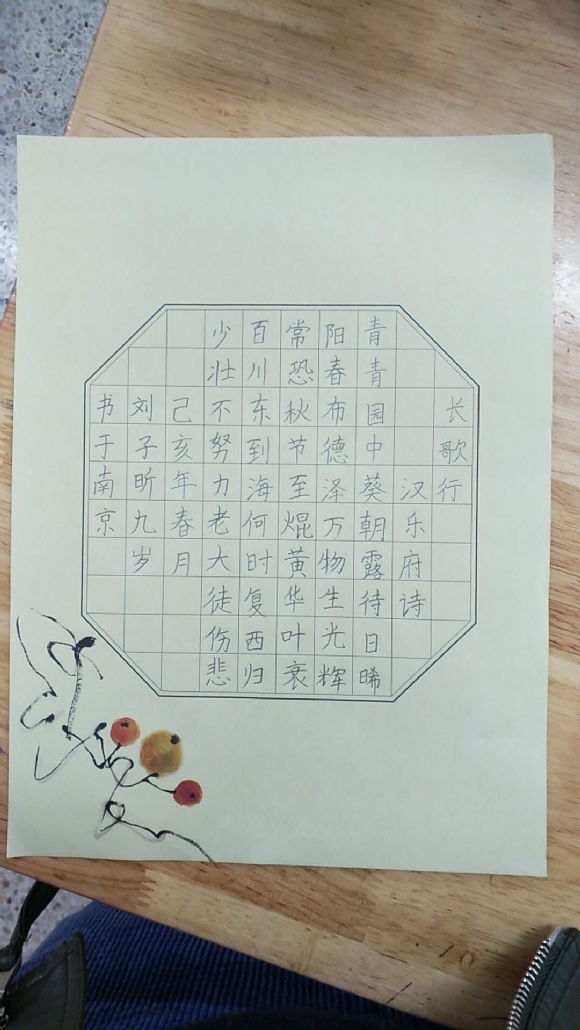 长歌行
汉乐府诗
青青园中葵朝露待日晞
阳春布德泽万物生光辉
常恐秋节至焜黄华叶衰
百川东到海何时复西归
少壮不努力老大徒伤悲
己亥年春月
刘子昕九岁
书于南京